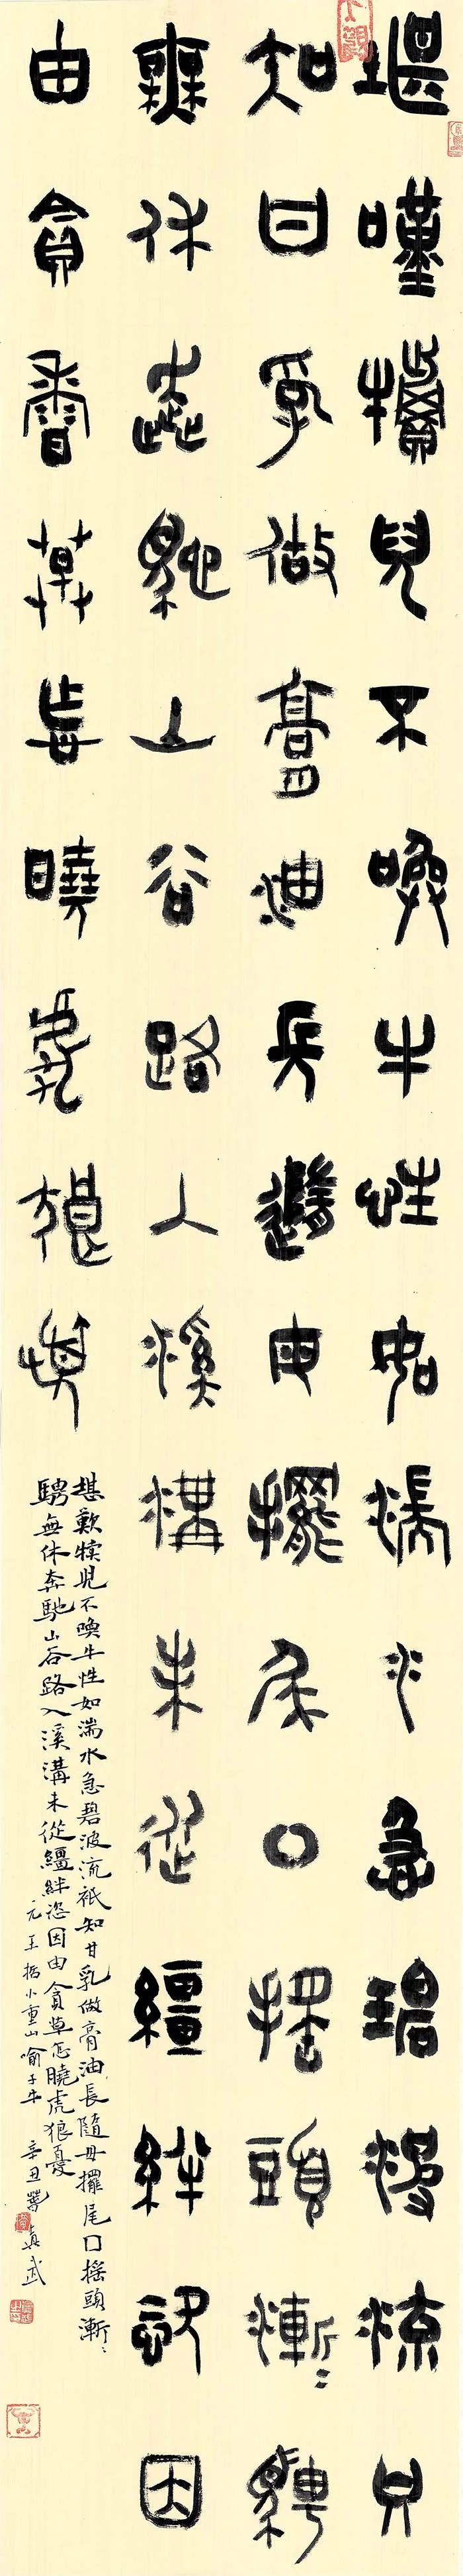 堪嘆犢兒不喚牛性如湍水急碧波流只
知甘乳做膏油長隨母擺尾○搖頭漸〻騁
無休奔馳山谷路入溪溝未從繮絆恣因
由貪香草怎曉虎狼憂
堪歎犢兒不喚牛性如湍水急碧波流祇知甘乳做膏油長隨母擺尾口搖頭漸〻
騁無休奔馳山谷路入溪溝未從繮絆恣因由貪草怎曉虎狼憂
元王喆小重山喻子牛 辛丑 真武